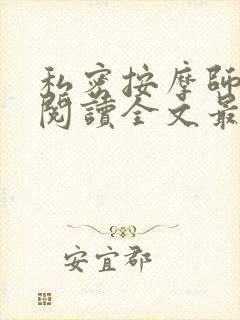 私密按摩師
閱讀全文最
安宜郡